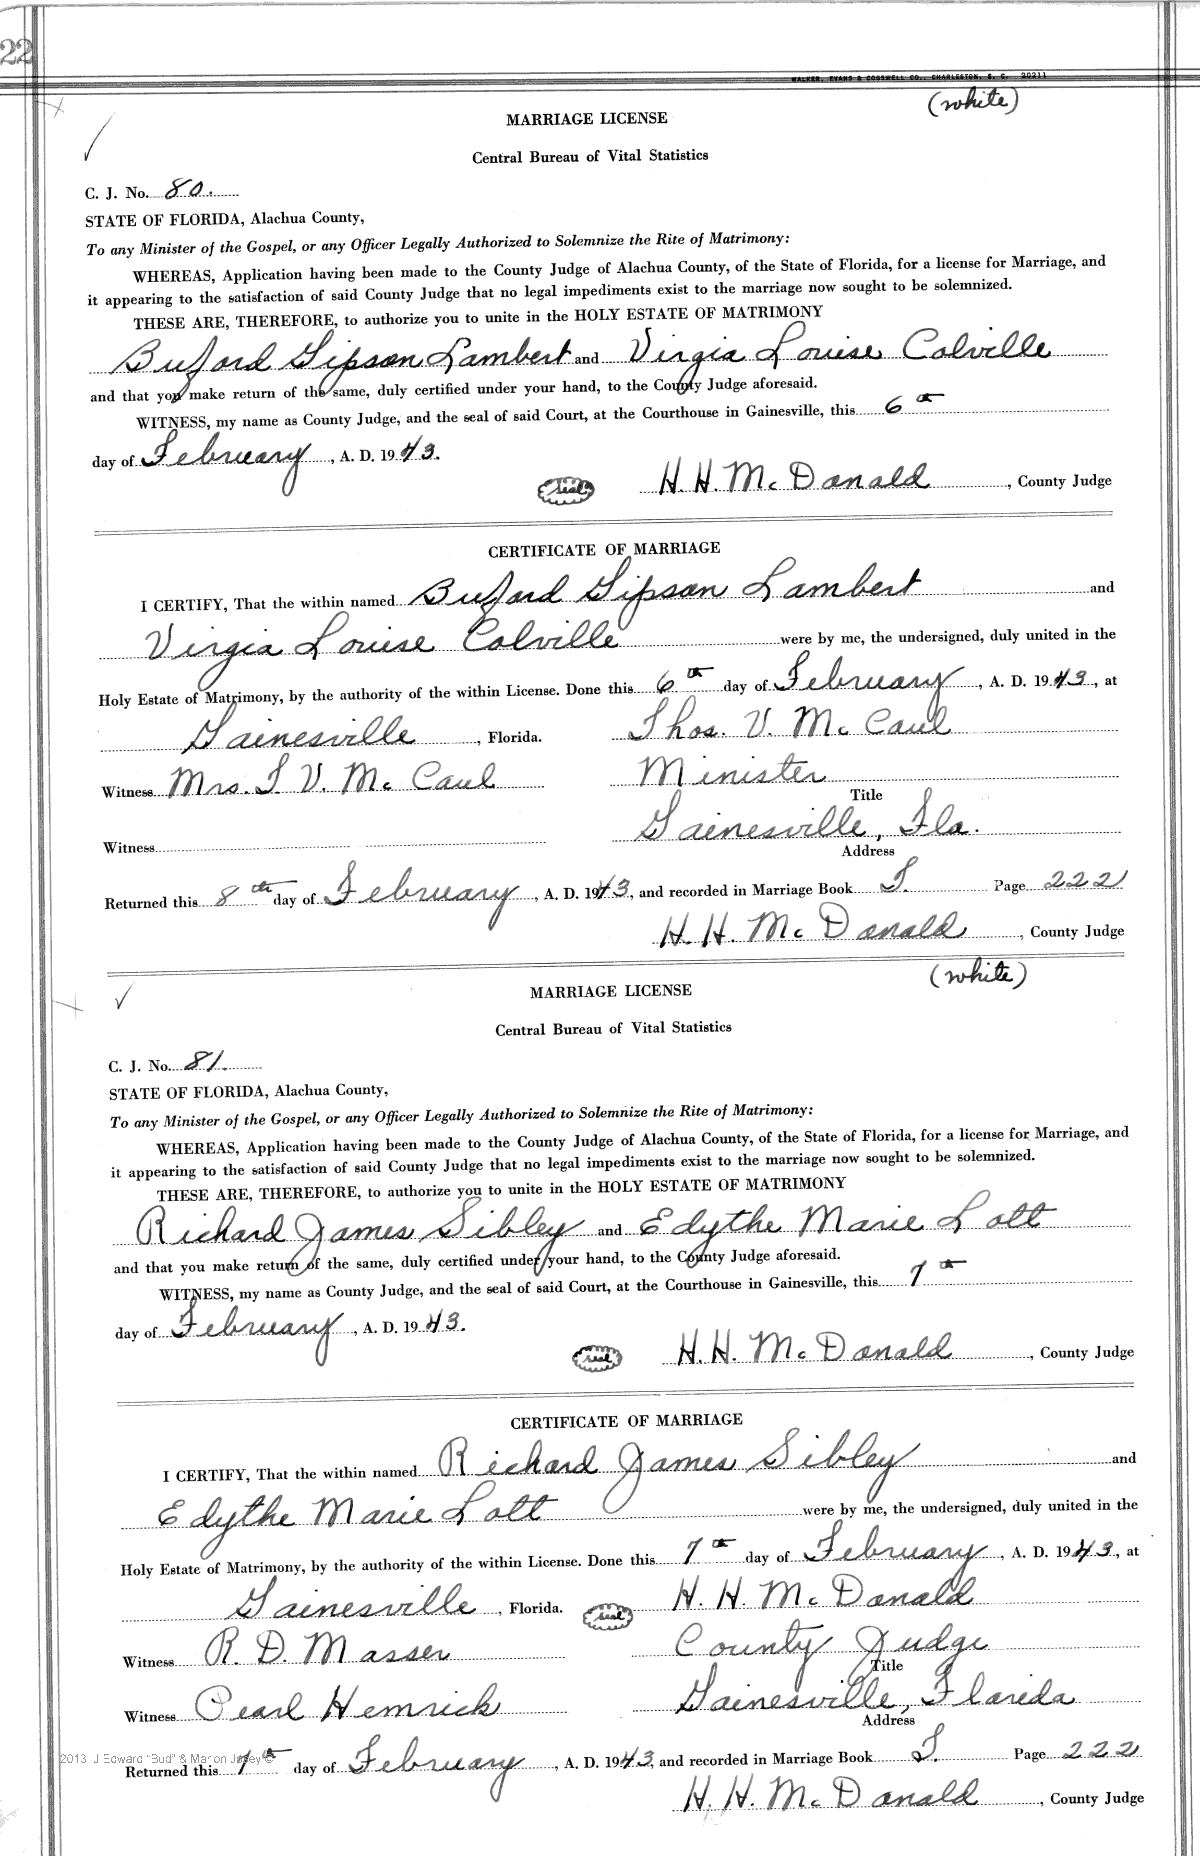 22
WALKER, EVANS & COGSWELL CO., CHARLESTON, S. C. 20211
(white)
MARRIAGE LICENSE
Central Bureau of Vital Statistics
C. J. No. 80.
STATE OF FLORIDA, Alachua County,
To any Minister of the Gospel, or any Officer Legally Authorized to Solemnize the Rite of Matrimony:
WHEREAS, Application having been made to the County Judge of Alachua County, of the State of Florida, for a license for Marriage, and
it appearing to the satisfaction of said County Judge that no legal impediments exist to the marriage now sought to be solemnized.
THESE ARE, THEREFORE, to authorize you to unite in the HOLY ESTATE OF MATRIMONY
Buford Gipson Lambert and Virgia Louise Colville
and that you make return of the same, duly certified under your hand, to the County Judge aforesaid.
WITNESS, my name as County Judge, and the seal of said Court, at the Courthouse in Gainesville, this 6th
day of February, A. D. 1943.
seal H. H. McDonald, County Judge
CERTIFICATE OF MARRIAGE
I CERTIFY, That the within named Buford Gipson Lambert and
Virgia Louise Colville were by me, the undersigned, duly united in the
Holy Estate of Matrimony, by the authority of the within License. Done this 6th day of February, A. D. 1943, at
Gainesville, Florida. Thos. V. McCaul
Witness Mrs. T. V. McCaul Minister
Title
Gainesville, Fla.
Witness
Address
Returned this 8th day of February, A. D. 1943, and recorded in Marriage Book T. Page 222
H. H. McDonald, County Judge
(white)
MARRIAGE LICENSE
Central Bureau of Vital Statistics
C. J. No. 81.
STATE OF FLORIDA, Alachua County,
To any Minister of the Gospel, or any Officer Legally Authorized to Solemnize the Rite of Matrimony:
WHEREAS, Application having been made to the County Judge of Alachua County, of the State of Florida, for a license for Marriage, and
it appearing to the satisfaction of said County Judge that no legal impediments exist to the marriage now sought to be solemnized.
THESE ARE, THEREFORE, to authorize you to unite in the HOLY ESTATE OF MATRIMONY
Richard James Sibley and Edythe Marie Lott
and that you make return of the same, duly certified under your hand, to the County Judge aforesaid.
WITNESS, my name as County Judge, and the seal of said Court, at the Courthouse in Gainesville, this 7th
day of February, A. D. 1943.
seal H. H. McDonald, County Judge
CERTIFICATE OF MARRIAGE
I CERTIFY, That the within named Richard James Sibley and
Edythe Marie Lott were by me, the undersigned, duly united in the
Holy Estate of Matrimony, by the authority of the within License. Done this 7th day of February, A. D. 1943, at
Gainesville, Florida. seal H. H. McDonald
Witness R. D. Masser County Judge
Title
Witness Pearl Hemrick Gainesville, Florida
Address
2013 J Edward "Bud" & Marion Josey ©
Returned this 7th day of February, A. D. 1943, and recorded in Marriage Book T. Page 222
H. H. McDonald, County Judge